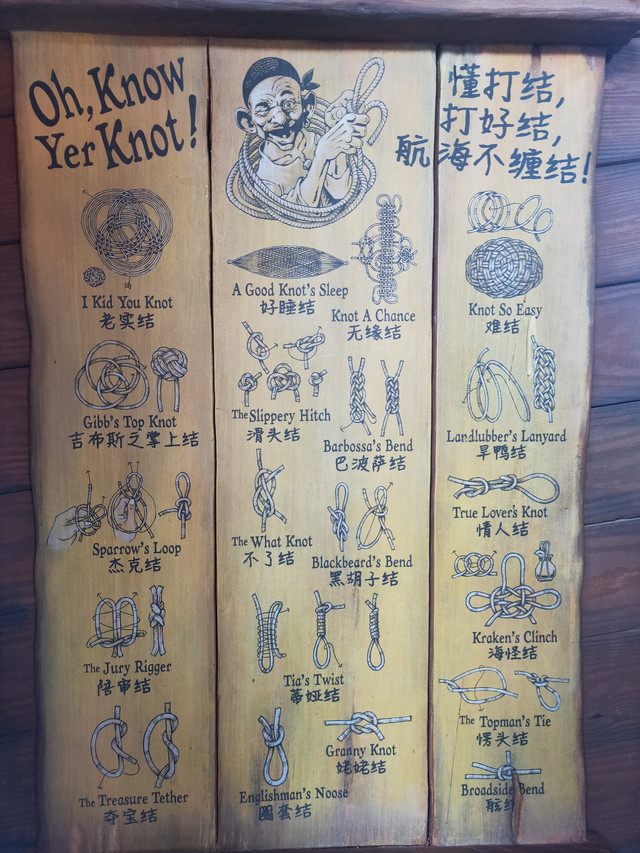 Oh, Know
Yer Knot!
懂打结,
打好结,
航海不缠结!
I Kid You Knot
老实结
Gibb's Top Knot
吉布斯之掌上结
Sparrow's Loop
杰克结
The Jury Rigger
陪审结
The Treasure Tether
夺宝结
A Good Knot's Sleep
好睡结
Knot A Chance
无缘结
The Slippery Hitch
滑头结
Barbossa's Bend
巴波萨结
The What Knot
不了结
Blackbeard's Bend
黑胡子结
Tia's Twist
蒂娅结
Granny Knot
姥姥结
Englishman's Noose
圈套结
Knot So Easy
难结
Landlubber's Lanyard
旱鸭结
True Lover's Knot
情人结
Kraken's Clinch
海怪结
The Topman's Tie
愣头结
Broadside Bend